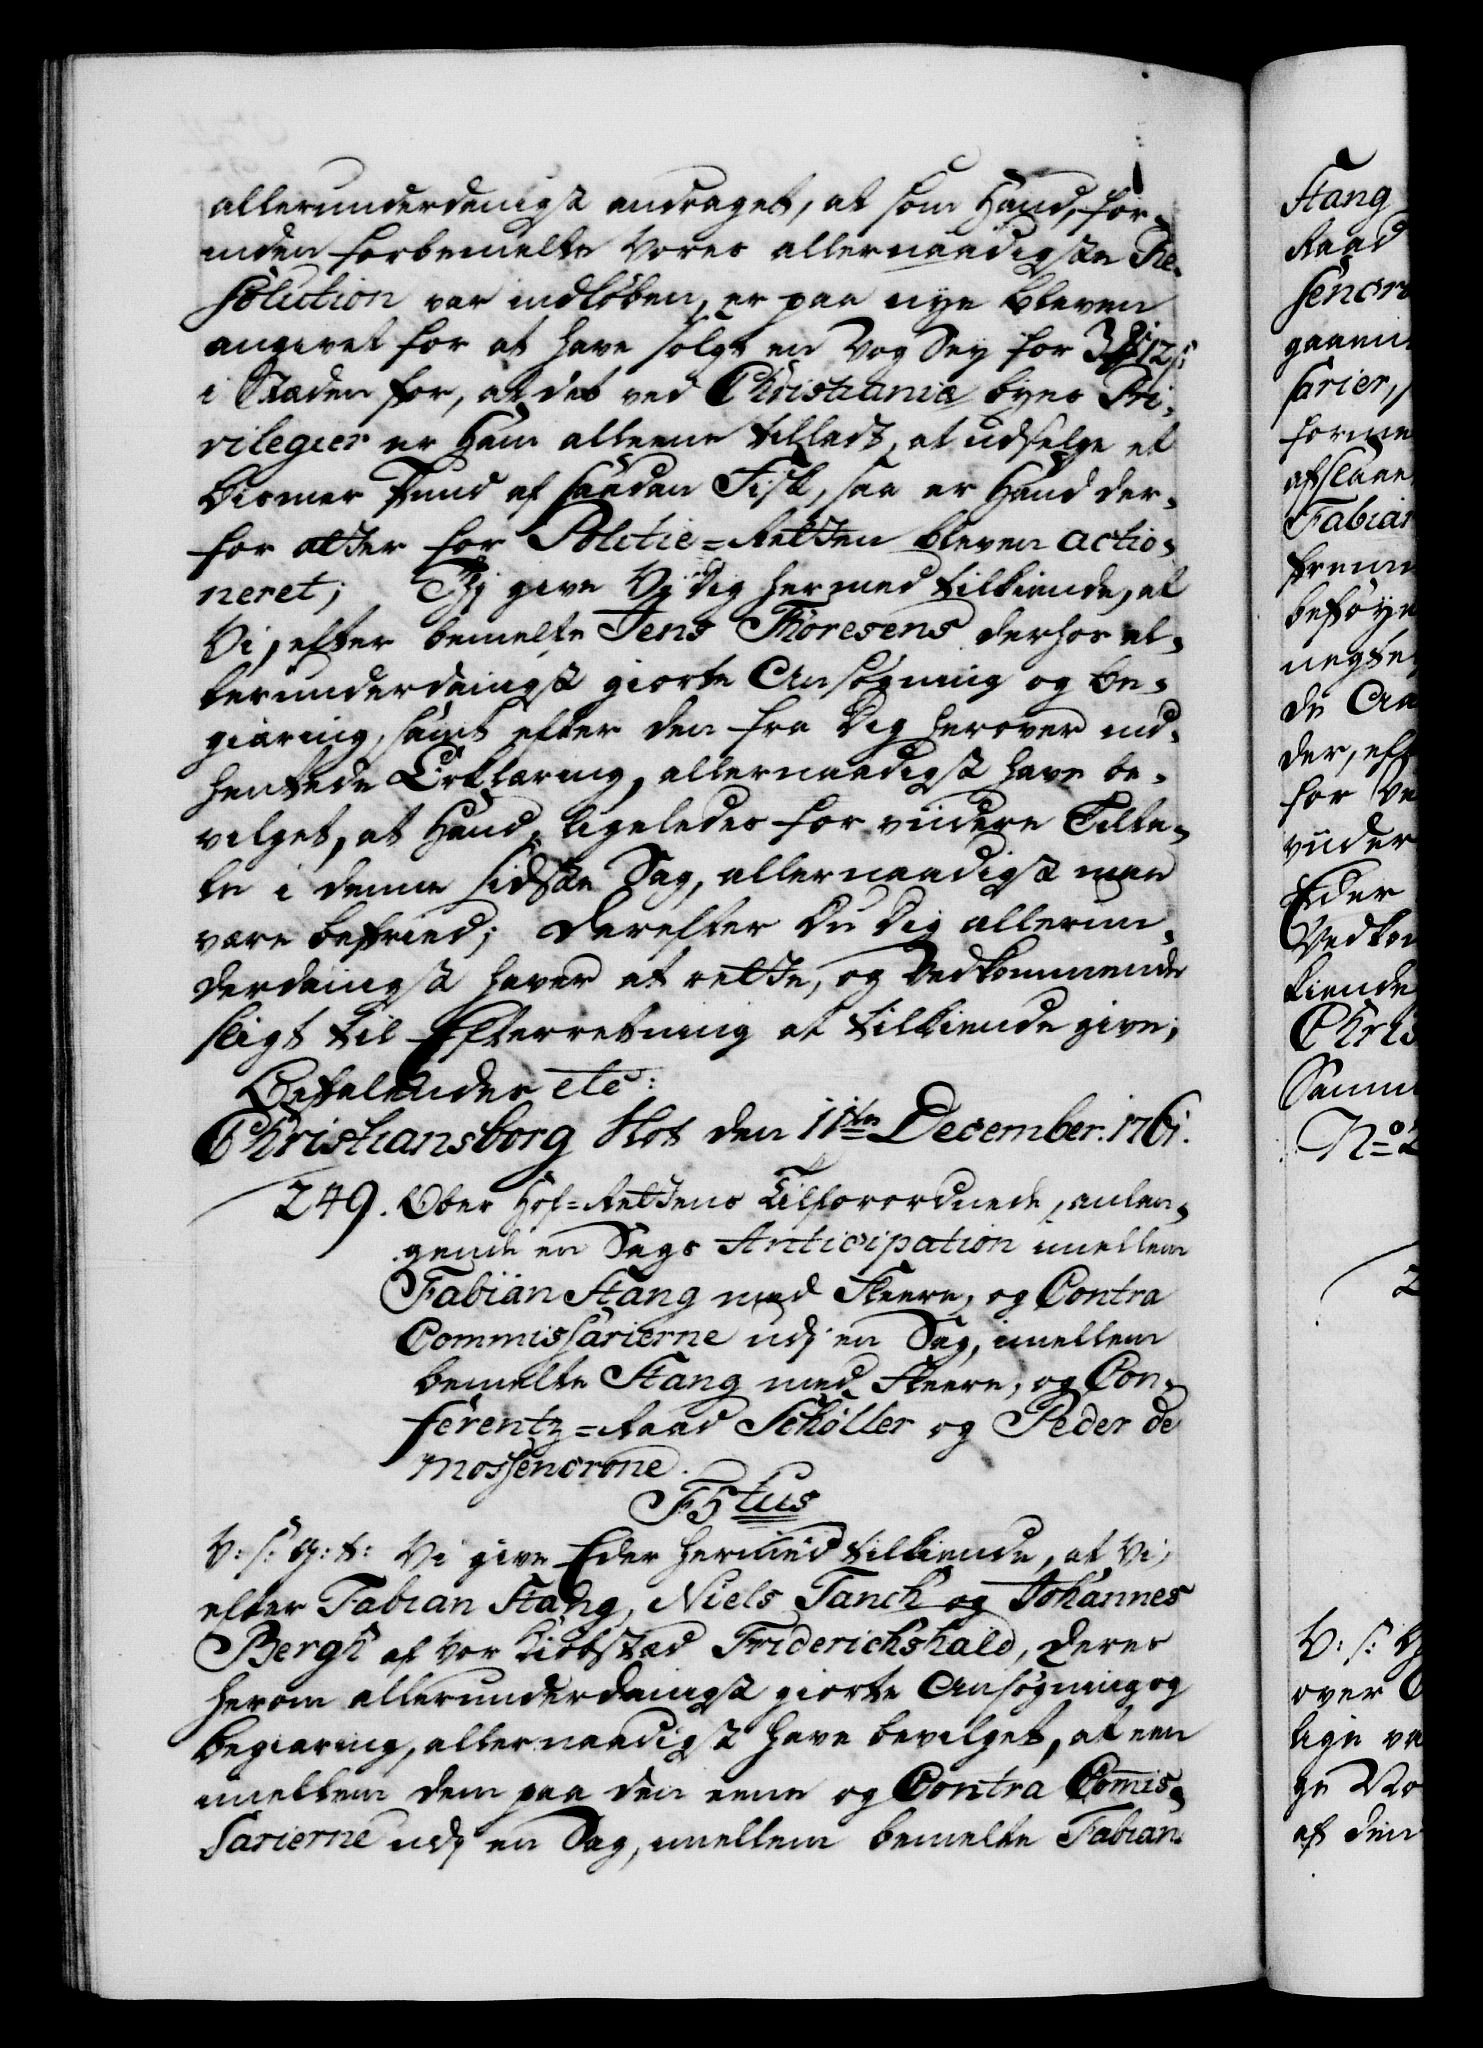 allerunderdanigst andraget, at som Hand, for-
inden forbemelte Vores allernaadigste Re-
solution var indløben, er paa nye bleven
angivet for at have solgt en Vog Sey for 3 12 s:
i Stæden for, at det ved Christianiæ byes Pri-
vilegier er Ham alleene tilladt, at udselge et
Bismer Pund af saadan Fisk, saa er Hand der-
for atter for Politie-Retten bleven actio-
neret; Thj give Vj Dig hermed tilkiende, at
Vi, efter bemelte Jens Thoresens derhos al-
lerunderdanigst giorte Ansøgning og be-
giæring, samt efter den fra Dig herover ind-
hentede Erklæring, allernaadigst have be-
vilget, at Hand, ligeledes for viidere Tilta-
le i denne sidste Sag, allernaadigst maa
være befried; Derefter Du Dig allerun-
derdanigst haver at rette, og Vedkommende
sligt til Efterretning at tilkiende give;
Befalendes etc:
Christiansborg Slot den 11ten December. 1761.
249. Ober Hof-Rettens Tilforordnede, anlan-
gende en Sags Anticipation imellem
Fabian Stang med Fleere, og Contra
Commissarierne udj en Sag, imellem
bemelte Stang med Fleere, og Con-
ferentz-Raad Schøller og Peder de
Mossencrone.
F5tus
V: s: G: T: Vi give Eder hermed tilkiende, at Vi,
efter Fabian Stang, Niels Tanch og Johannes
Bergh af Vor Kiøbstæd Friderichshald, deres
herom allerunderdanigst giorte Ansøgning og
begiæring, allernaadigst have bevilget, at een
imellem dem paa den eene og Contra Comis-
sarierne udj en Sag, imellem bemelte Fabian